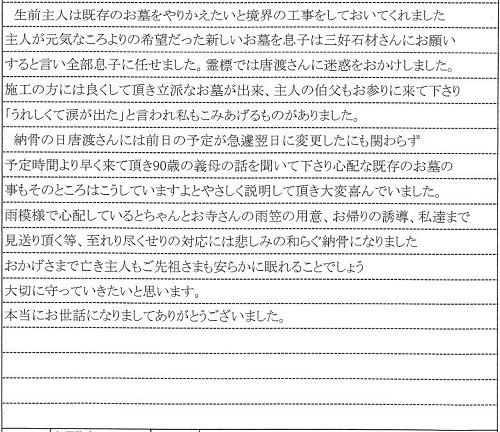 生前主人は既存のお墓をやりかえたいと境界の工事をしておいてくれました
主人が元気なころよりの希望だった新しいお墓を息子は三好石材さんにお願い
すると言い全部息子に任せました。霊標では唐渡さんに迷惑をおかけしました。
施工の方には良くして頂き立派なお墓が出来、主人の伯父もお参りに来て下さり
「うれしくて涙が出た」と言われ私もこみあげるものがありました。
納骨の日唐渡さんには前日の予定が急遽翌日に変更したにも関わらず
予定時間より早く来て頂き90歳の義母の話を聞いて下さり心配な既存のお墓の
事もそのところはこうしていますよとやさしく説明して頂き大変喜んでいました。
雨模様で心配しているとちゃんとお寺さんの雨笠の用意、お帰りの誘導、私達まで
見送り頂く等、至れり尽くせりの対応には悲しみの和らぐ納骨になりました
おかげさまで亡き主人もご先祖さまも安らかに眠れることでしょう
大切に守っていきたいと思います。
本当にお世話になりましてありがとうございました。